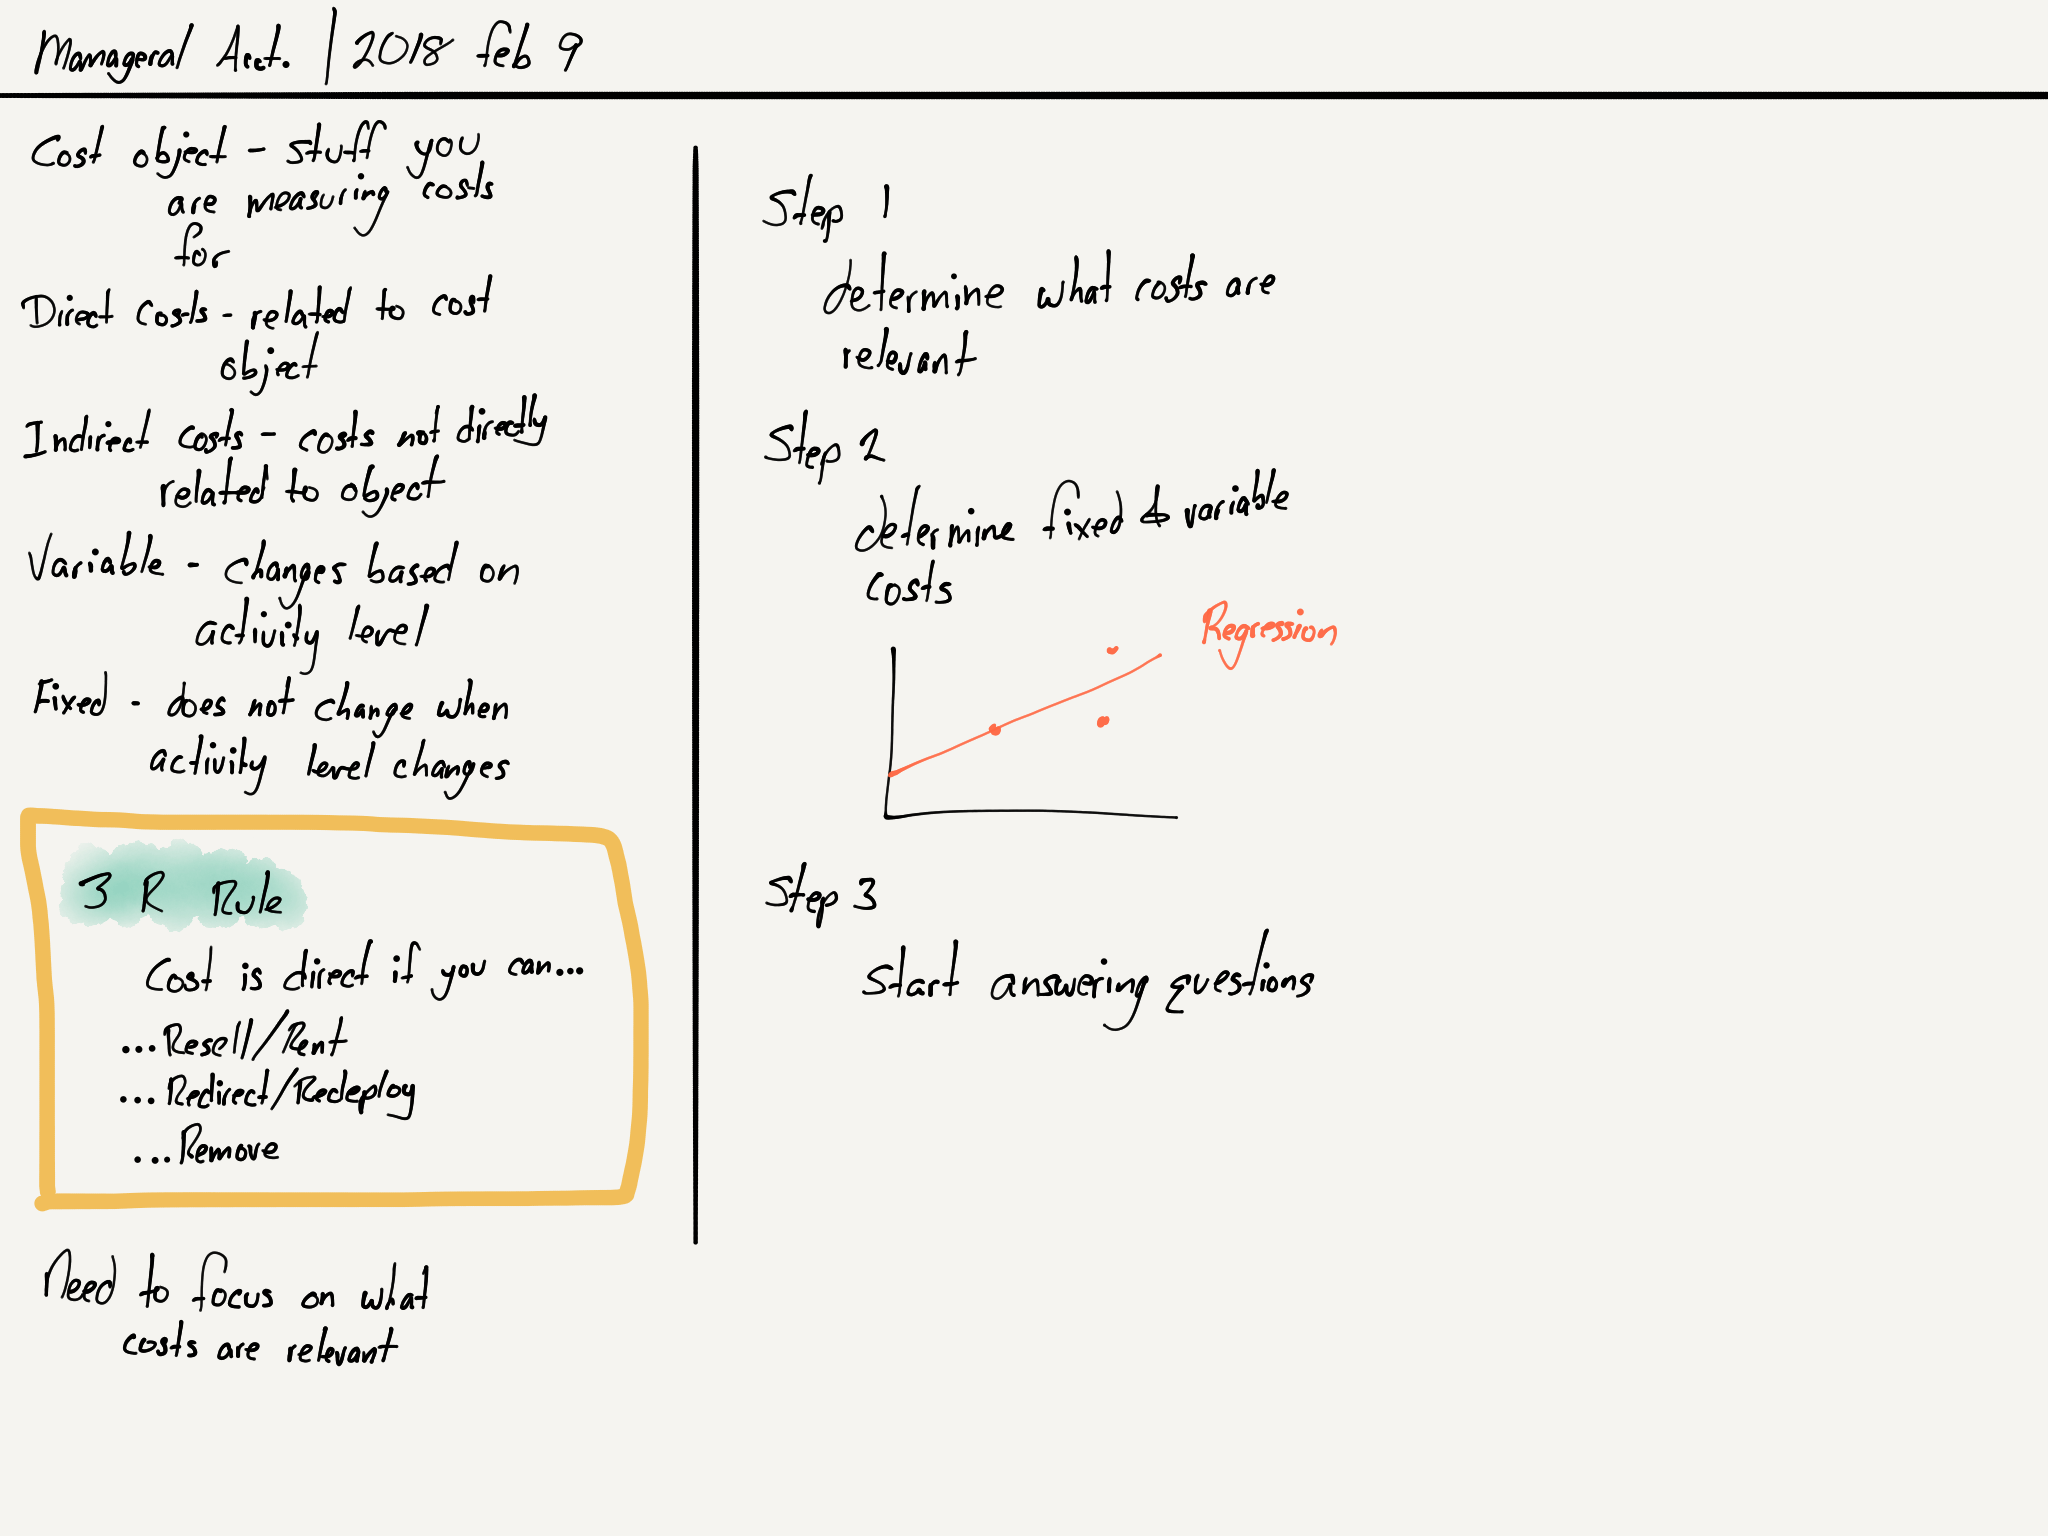 Manageral Acct. | 2018 feb 9
Cost object - stuff you
are measuring costs
for
Direct Costs - related to cost
object
Indirect Costs - costs not directly
related to object
Variable - changes based on
activity level
Fixed - does not change when
activity level changes
3 R Rule
Cost is direct if you can...
...Resell/Rent
...Redirect/Redeploy
...Remove
Need to focus on what
costs are relevant
Step 1
determine what costs are
relevant
Step 2
determine fixed & variable
costs
Regression
Step 3
Start answering questions